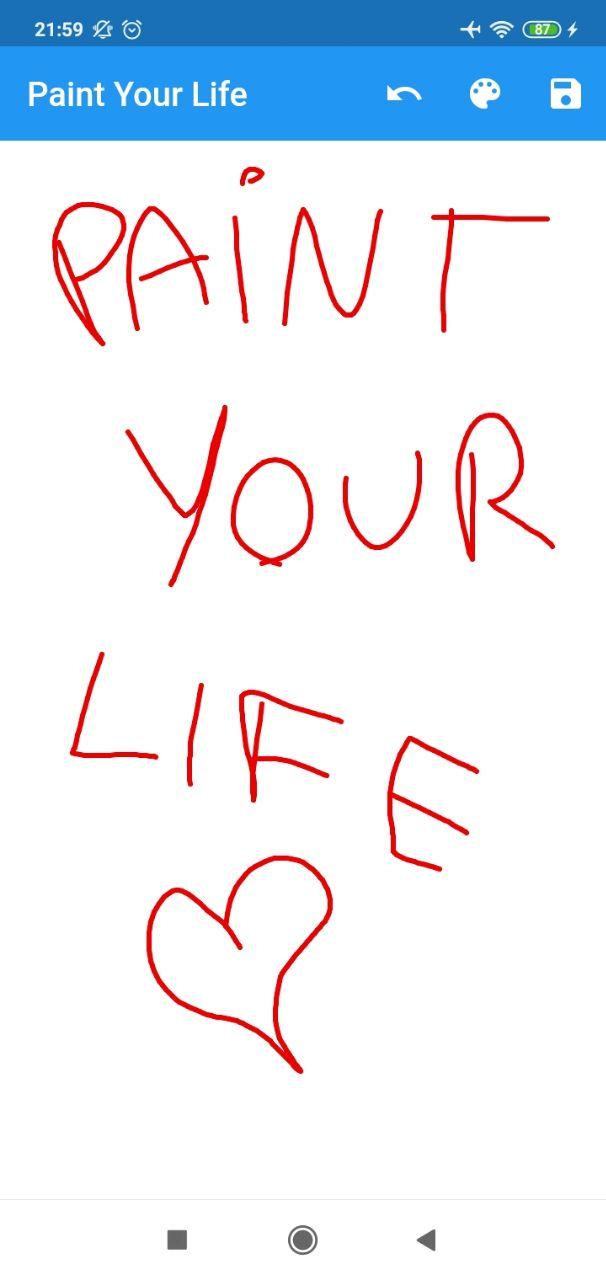 21:59 87
Paint Your Life
PAiNT
YOUR
LIFE